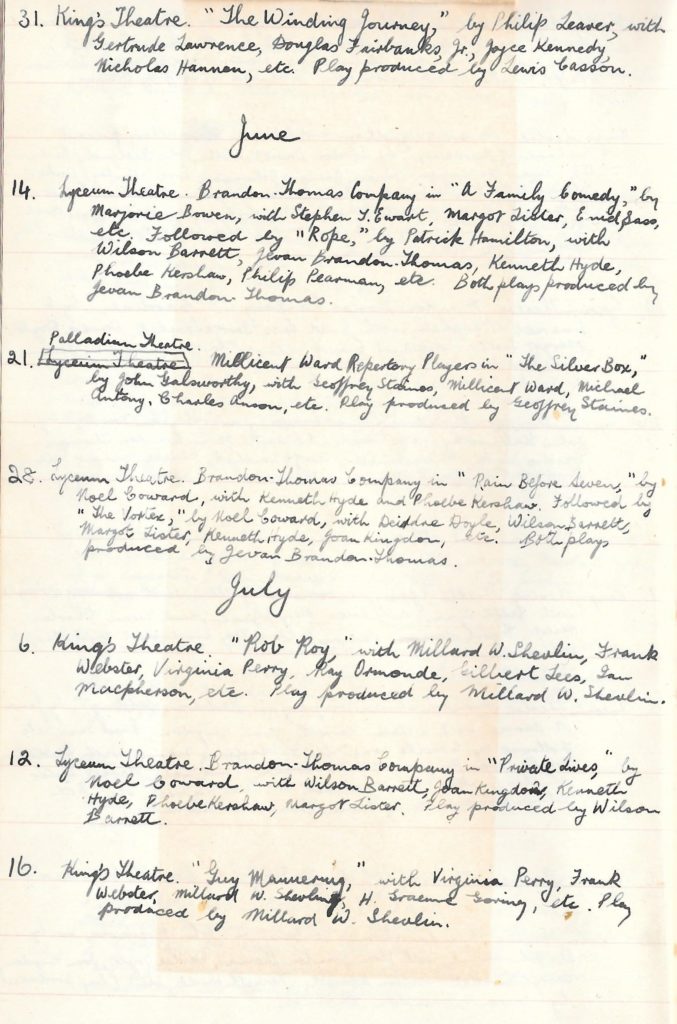 31. King's Theatre. "The Winding Journey," by Philip Leaver, with
Gertrude Lawrence, Douglas Fairbanks, Jr., Joyce Kennedy,
Nicholas Hannen, etc. Play produced by Lewis Casson.
June
14. Lyceum Theatre. Brandon-Thomas Company in "A Family Comedy," by
Marjorie Bowen, with Stephen T. Ewart, Margot Lister, Enid Sass,
etc. Followed by "Rope," by Patrick Hamilton, with
Wilson Barrett, Jevan Brandon-Thomas, Kenneth Hyde,
Phoebe Kershaw, Philip Pearman, etc. Both plays produced by
Jevan Brandon-Thomas.
Palladium Theatre.
21. Lyceum Theatre Millicent Ward Repertory Players in "The Silver Box,"
by John Galsworthy, with Geoffrey Staines, Millicent Ward, Michael
Antony, Charles Anson, etc. Play produced by Geoffrey Staines.
28. Lyceum Theatre. Brandon-Thomas Company in "Pain Before Seven," by
Noel Coward, with Kenneth Hyde and Phoebe Kershaw. Followed by
"The Vortex," by Noel Coward, with Deirdre Doyle, Wilson Barrett,
Margot Lister, Kenneth Hyde, Joan Kingdon, etc. Both plays
produced by Jevan Brandon-Thomas.
July
6. King's Theatre. "Rob Roy," with Millard W. Shevlin, Frank
Webster, Virginia Perry, Ray Ormonde, Gilbert Lees, Ian
Macpherson, etc. Play produced by Millard W. Shevlin.
12. Lyceum Theatre. Brandon-Thomas Company in "Private Lives," by
Noel Coward, with Wilson Barrett, Joan Kingdon, Kenneth
Hyde, Phoebe Kershaw, Margot Lister. Play produced by Wilson
Barrett.
16. King's Theatre. "Guy Mannering," with Virginia Perry, Frank
Webster, Millard W. Shevlin, H. Graeme Goring, etc. Play
produced by Millard W. Shevlin.